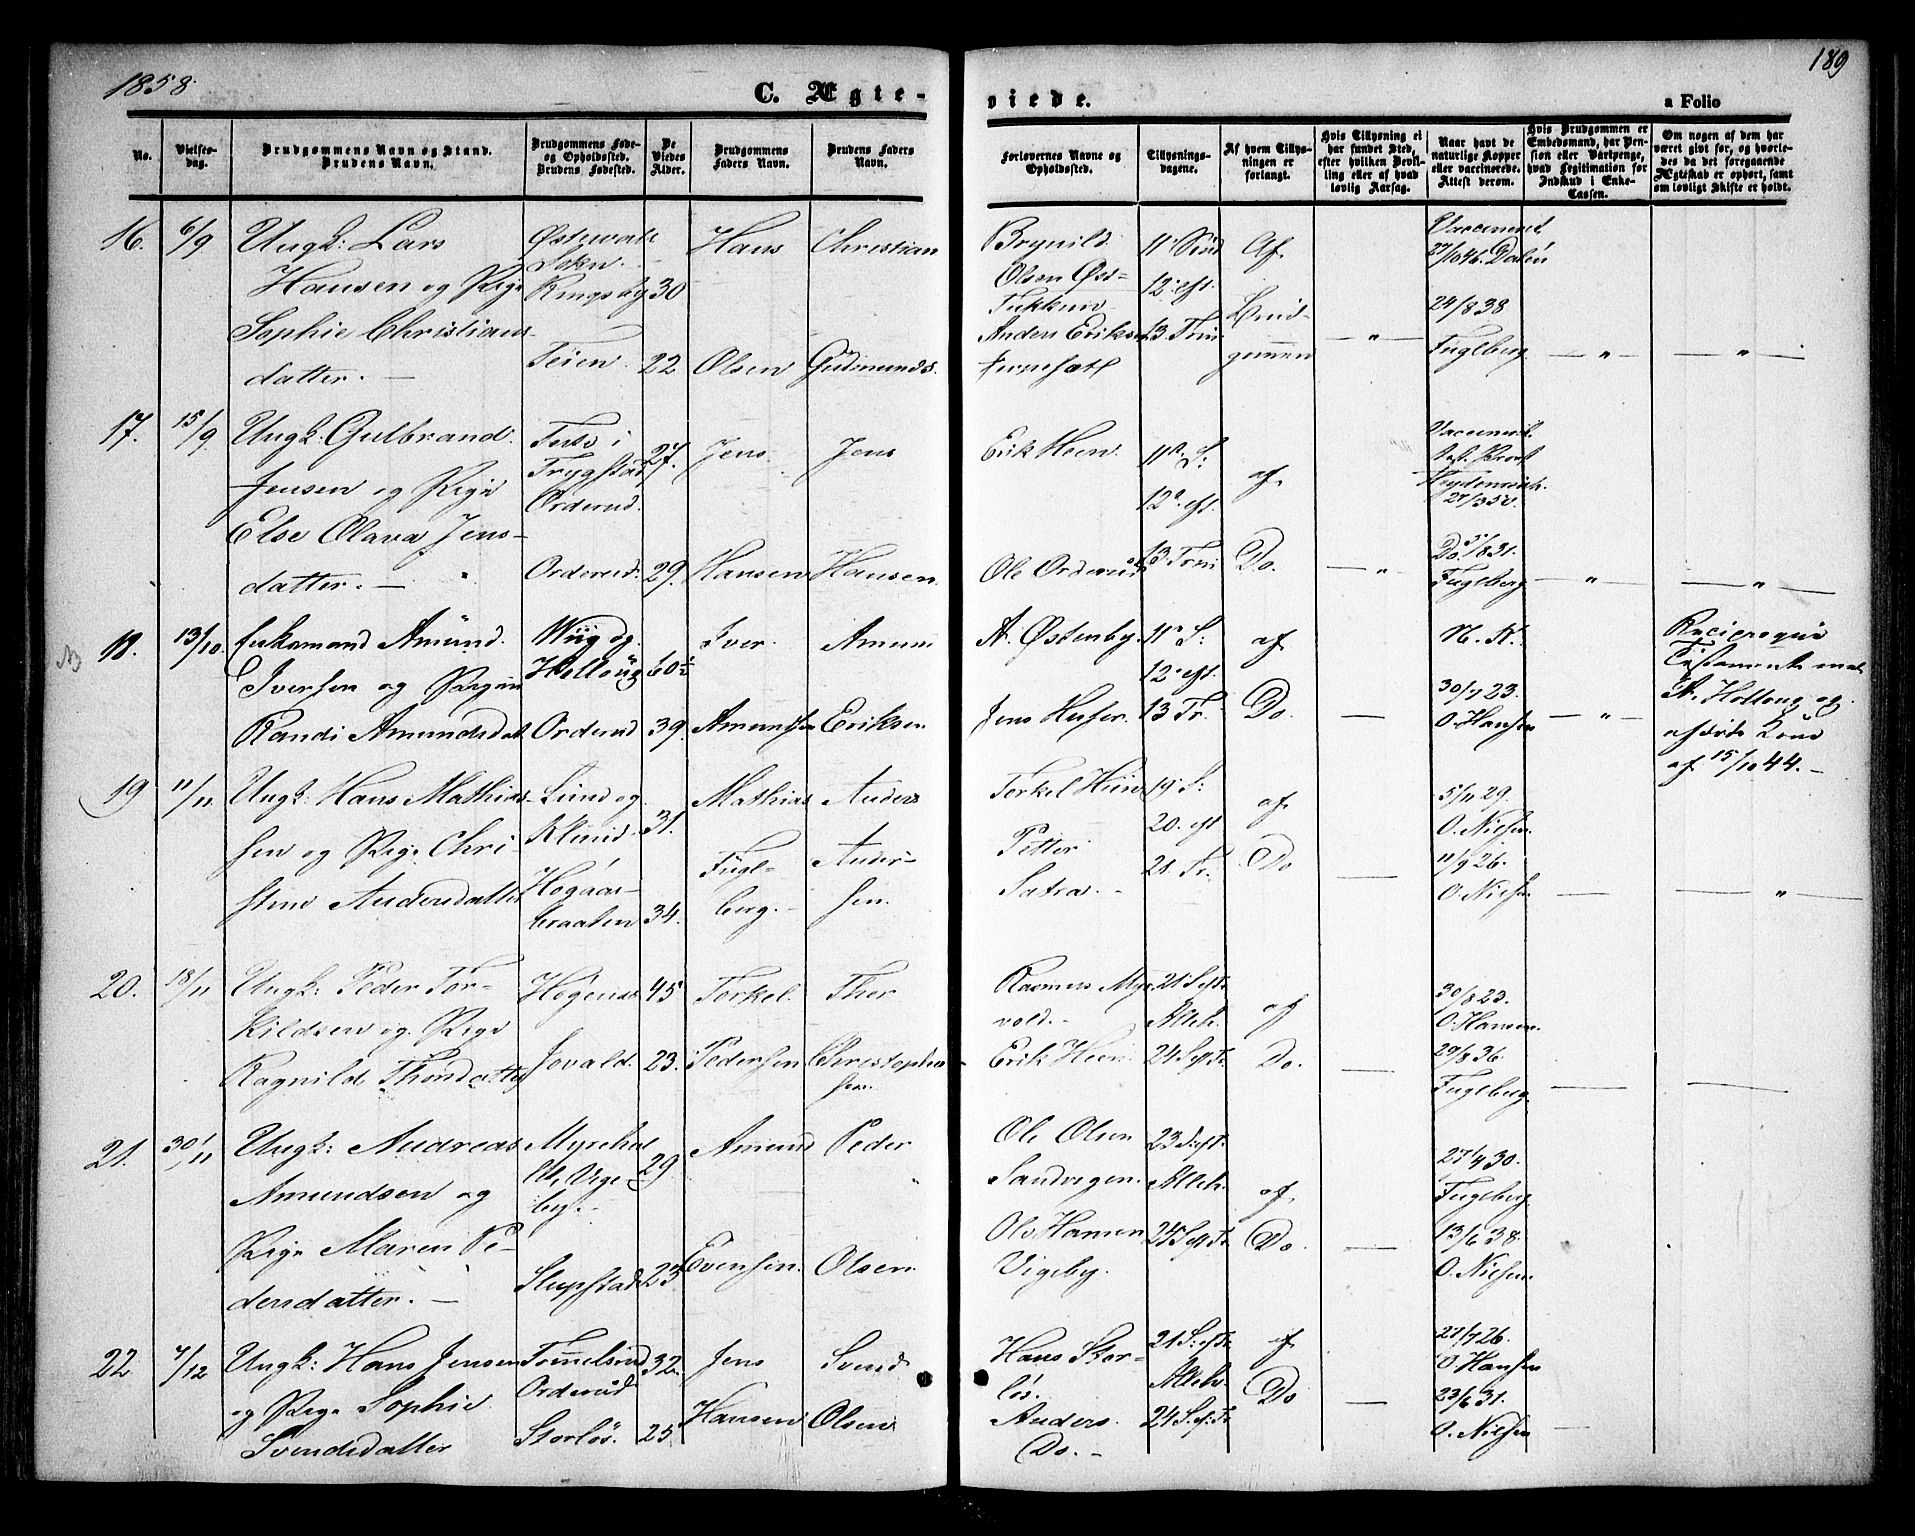 1858.
C. Ægte-
viede.
a Folio
189
No.
Vielses-
dag.
Brudgommens Navn og Stand.
Brudens Navn.
Brudgommens Føde-
og Opholdssted.
Brudens Fødested.
De
Viedes
Alder.
Brudgommens
Faders Navn.
Brudens Faders
Navn.
Forlovernes Navne og
Opholdssted.
Tillysnings-
dagene.
Af hvem Tillys-
ningen er
forlangt.
Hvis Tillysning ei
har fundet Sted,
efter hvilken Bevil-
ling eller af hvad
lovlig Aarsag.
Naar havt de
naturlige Kopper
eller vaccinerede.
Attest derom.
Hvis Brudgommen er
Embedsmand, har Pen-
sion eller Vartpenge,
hvad Legitimation for
Indskud i Enke-
Cassen.
Om nogen af dem har
været givt før, og hvorle-
des da det foregaaende
Ægteskab er ophørt, samt
om lovligt Skifte er holdt.
16. 6/9 Ungk: Lars
Hansen og Pige
Sophie Christians-
datter. —
Sokn.
Ringsby 30
Teien. 22
Hans
Olsen
Christian
Gudmunds.
Brynild
Olsen Øst-
Anders Eriksen
11 Sønd
12. eft.
13 Trin
Af
Brud-
gommen
— " —
Vaccineret
27/10 46. Dalen
24/8 38
Fuglberg
— " —
— " —
17. 15/9 Ungk: Gulbrand
Jensen og Pige
Else Olava Jens-
datter. —
Trygstad 27.
Orderud.
Orderud. 29.
Jens
Hansen
Jens
Hansen.
Erik Heen.
Ole Orderud
11te S:
12te eft.
13. Trin
af
Do.
— " —
Vaccinert.
27/3 50.
Do. 5/8 31.
Fuglberg
— " —
— " —
18. 13/10. Enkemand Amund
Iversen og Pigen
Randi Amundsdat.
Wiig og
Holloug 60½
Orderud 39.
Iver.
Amundsen
Amun
Eriksen.
A. Østenby.
Jens Huser.
11te S:
12te eft.
13 Tr.
af
Do.
—
N. K.
30/7 23.
O. Hansen
— " —
A. Hollong og
af 15/10 44. —
19 11/11 Ungk: Hans Mathias-
sen og Pige Chri-
stine Andersdatter
Lund og
Klund 31.
Hogaas-
braaten 34.
Mathias
Fugl-
berg.
Anders
Ander-
sen.
Torkel Heen
Petter
Satra. —
19 S:
20. eft
21. Tr.
af
Do
—
5/11 29.
O. Nielsen.
11/9 26.
O. Nielsen
—
— " —
20. 18/11 Ungk: Peder Tor-
kildsen og Pige
Ragnilde Thorsdatter
Høgenes 45
Jovald. 23.
Torkel.
Pedersen
Thor
Christophe
sen.
Rasmus Myr-
vold. —
Erik Heen.
21 S: eft
Alleh.
24 S. eft.
af
Do.
—
30/8 23.
O. Hansen.
29/8 36.
Fuglberg.
—
—
21. 30/11 Ungk: Andreas
Amundsen og
Pige Maren Pe-
dersdatter. —
Vige-
by. — 29
Slupstad 23
Amund
Evensen.
Peder
Olsen.
Ole Olsen
Sandvegen.
Ole Hansen
Vigeby.
23 S: eft.
Alleh.
24 S. eft.
af
Do.
—
27/7 30.
Fuglberg.
13/6 38.
O. Nielsen
22 7/12 Ungk: Hans Jensen
og Pige Sophie
Svendsdatter
Tømmelsrud 32.
Orderud
Storløs. 25
Jens
Hansen
Svend
Olsen
Hans Stor-
løs.
Anders
Do. —
21 S: eft
Alleh.
24 S. ef. Tr
af
Do
—
27/7 26.
O. Hansen
23/6 31.
O. Nielsen
—